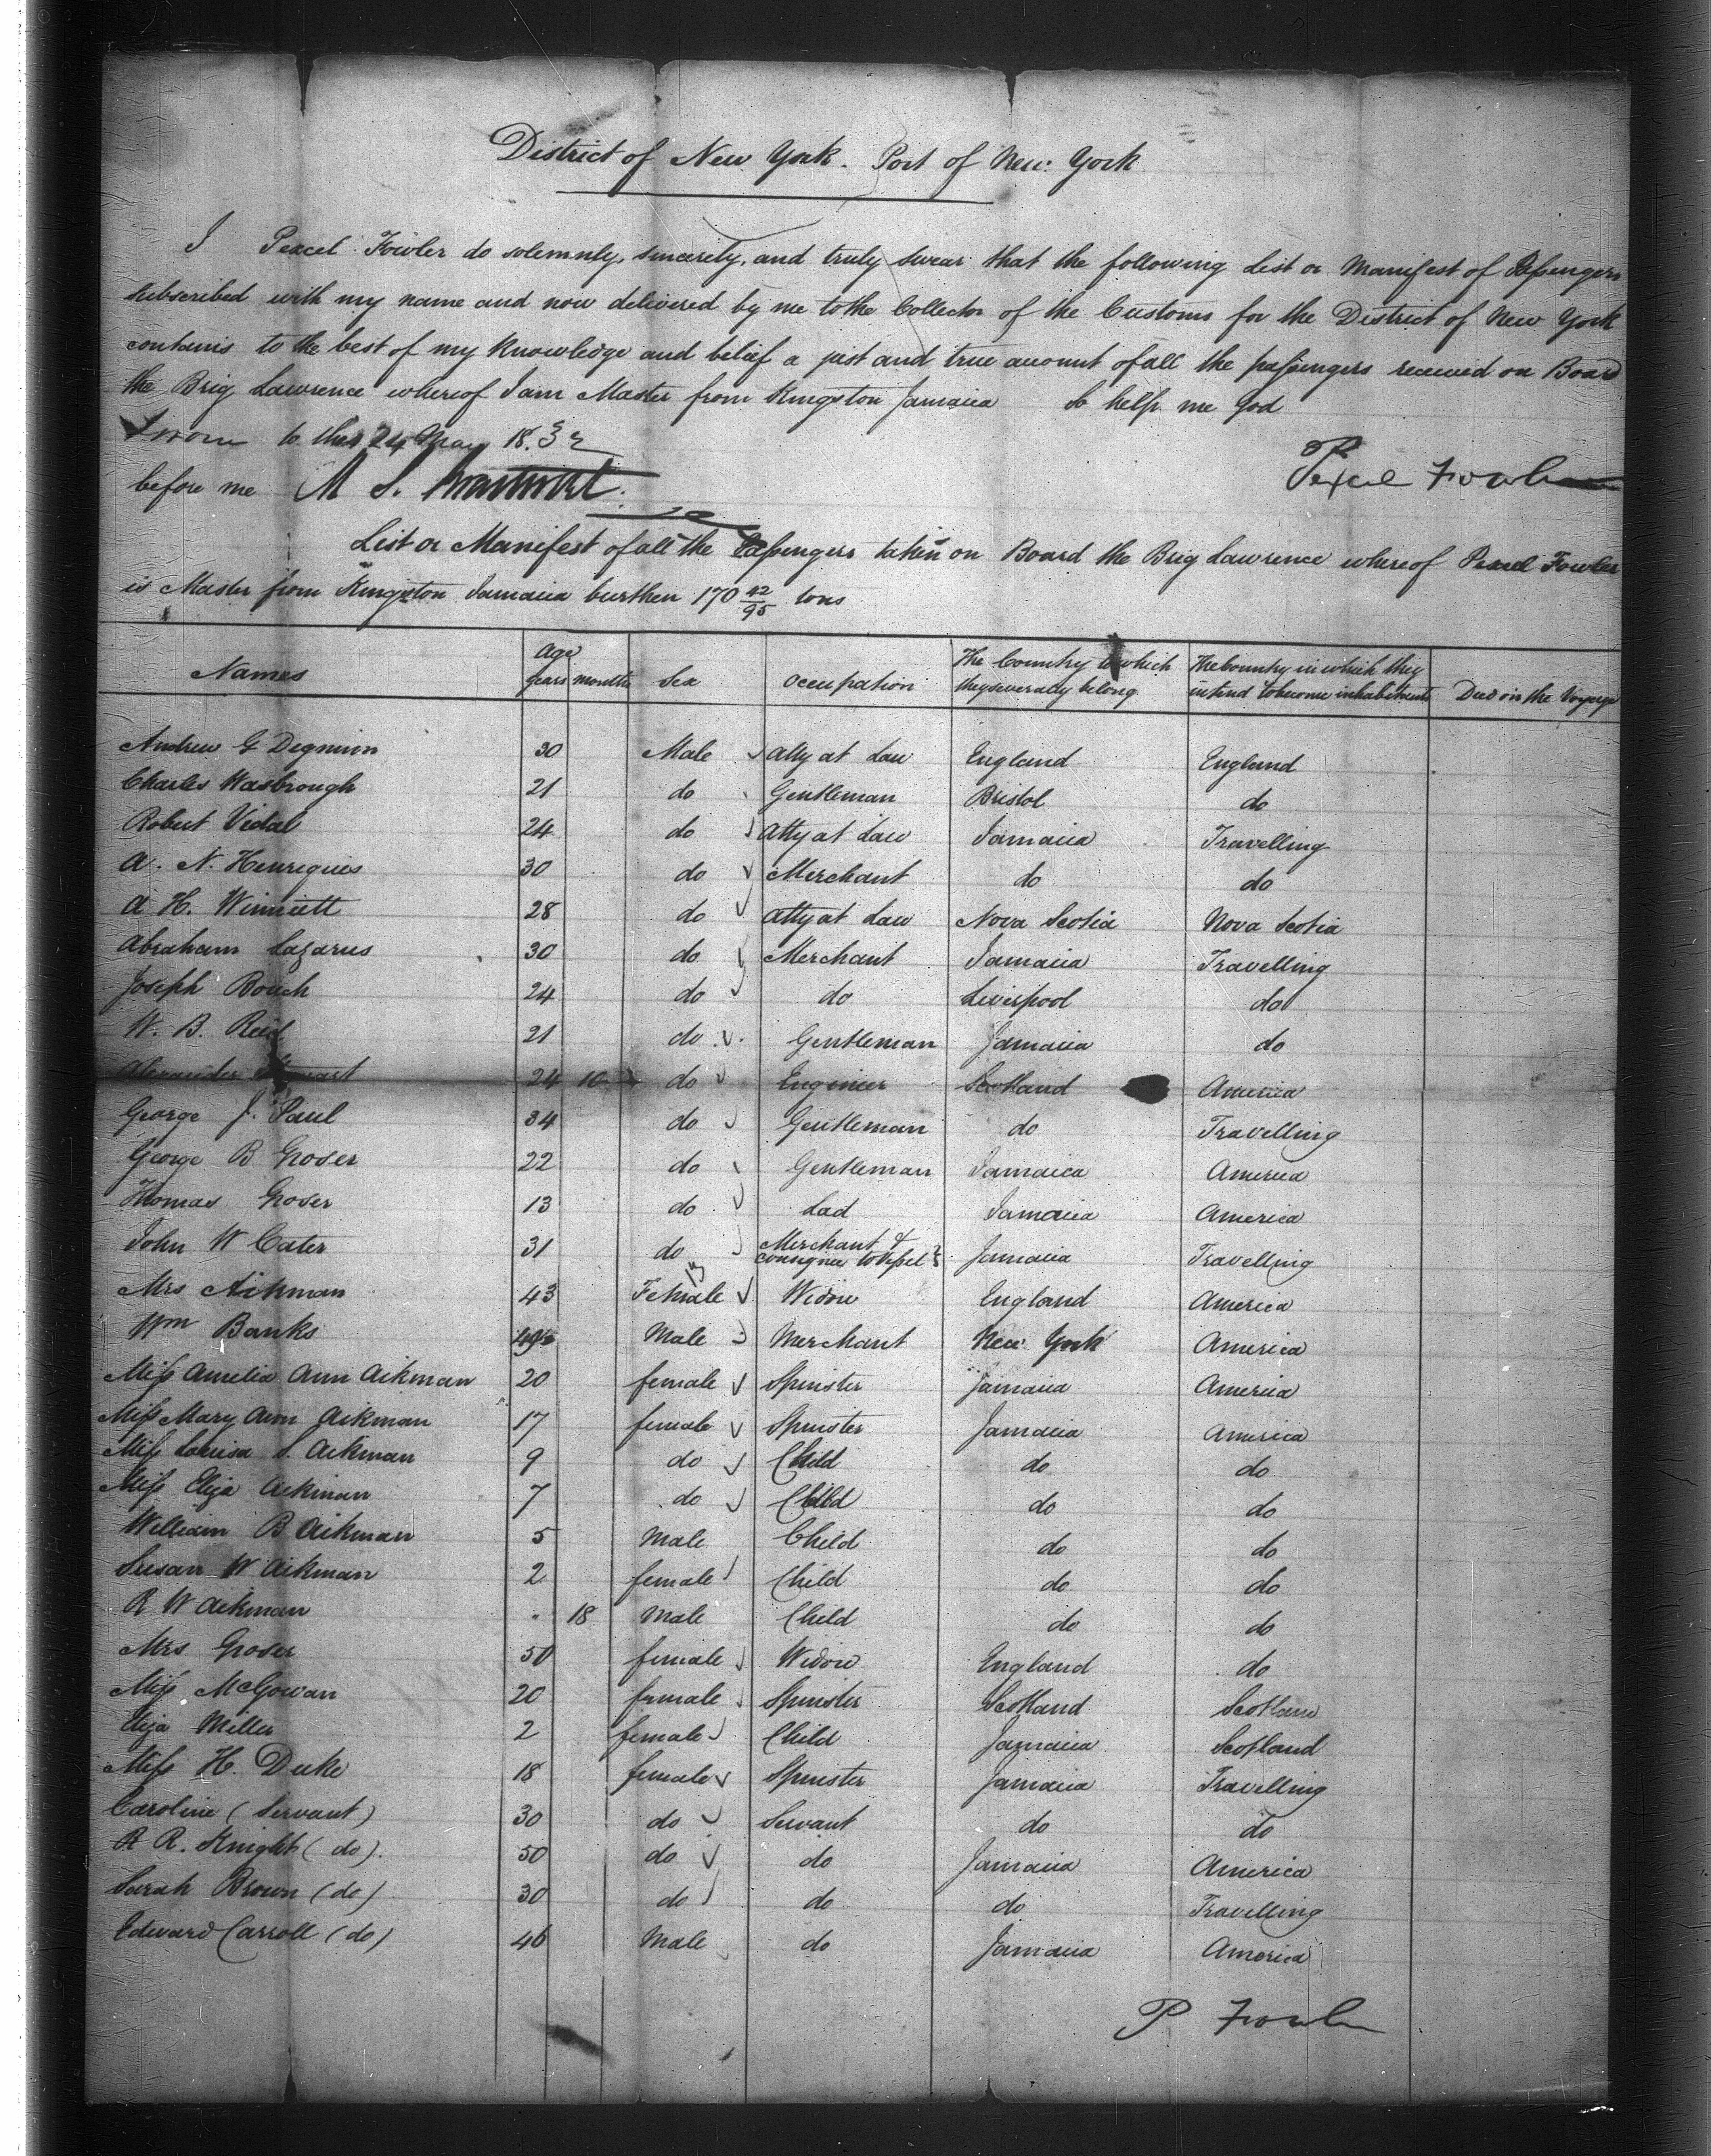 District of New York. Port of New York
I Pexcel Fowler do solemnly, sincerely, and truly swear that the following List or Manifest of Passengers
subscribed with my name and now delivered by me to the Collector of the Customs for the District of New York
contains to the best of my knowledge and belief a just and true account of all the passengers received on Board
the Brig Lawrence whereof I am Master from Kingston Jamaica So help me God
Sworn to this 24 May 1832
before me M S.
Pexcel Fowler
List or Manifest of all the Passengers taken on Board the Brig Lawrence whereof Pexcel Fowler
is Master from Kingston Jamaica burthen 170 42/95 tons
Names Age years months Sex Occupation The Country to which they severally belong The Country in which they intend to become inhabitants Died on the Voyage
Andrew G Degminn 30 Male Atty at Law England England
Charles Wasbrough 21 do Gentleman Bristol do
Robert Vidal 24 do Atty at Law Jamaica Travelling
A. N. Henriques 30 do Merchant do do
A H. Winniett 28 do Atty at Law Nova Scotia Nova Scotia
Abraham Lazarus 30 do Merchant Jamaica Travelling
Joseph Bouch 24 do do Liverpool do
W. B. Reid 21 do Gentleman Jamaica do
Alexander Stewart 24 10 do Engineer Scotland America
George J. Paul 34 do Gentleman do Travelling
George B Groser 22 do Gentleman Jamaica America
Thomas Groser 13 do Lad Jamaica America
John W Cater 31 do Merchant & consignee to Vessel Jamaica Travelling
Mrs Aikman 43 Female Widow England America
Wm Banks Male Merchant New York America
Miss Amelia Ann Aikman 20 female Spinster Jamaica America
Miss Mary Ann Aikman 17 female Spinster Jamaica America
Miss Louisa S. Aikman 9 do Child do do
Miss Eliza Aikman 7 do Child do do
William B Aikman 5 Male Child do do
Susan W Aikman 2 female Child do do
R W Aikman " 18 Male Child do do
Mrs Groser 50 female Widow England do
Miss McGowan 20 female Spinster Scotland Scotland
Eliza Miller 2 female Child Jamaica Scotland
Miss H. Duke 18 female Spinster Jamaica Travelling
Caroline (Servant) 30 do Servant do do
R R. Knight (do). 50 do do Jamaica America
Sarah Brown (do) 30 do do do Travelling
Edward Carroll (do) 46 Male do Jamaica America
P Fowler